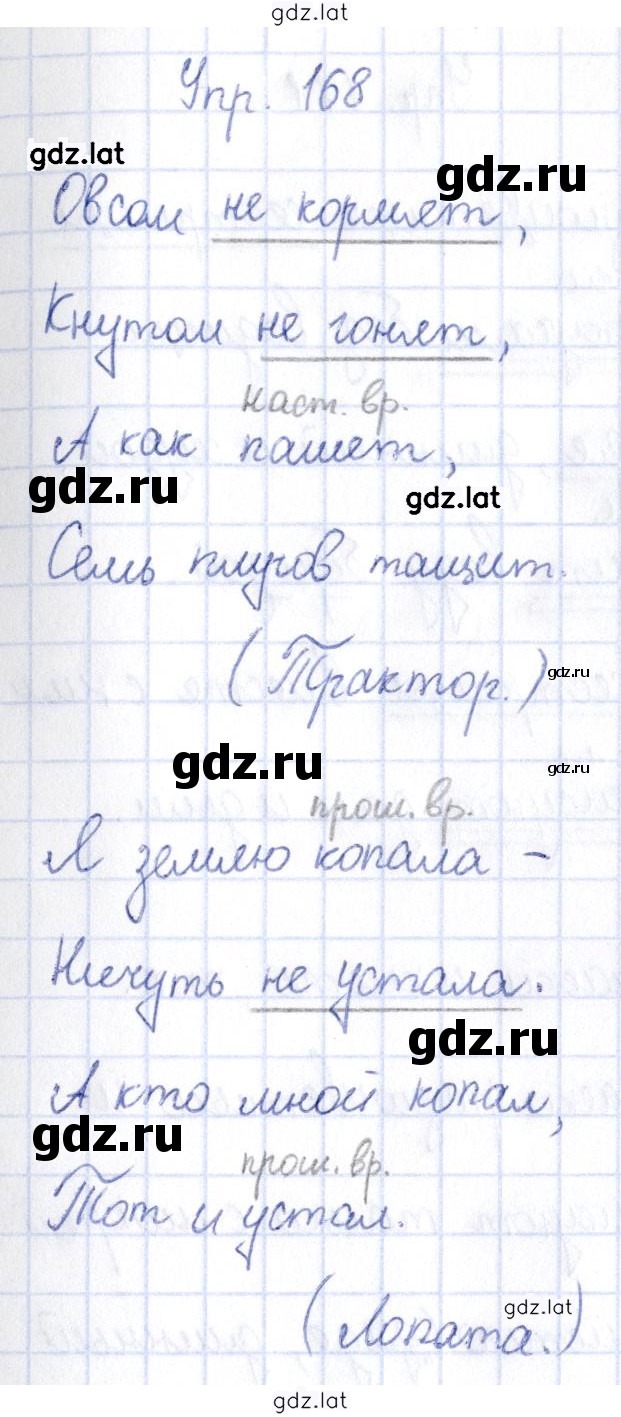 gdz.lat
Упр. 168
gdz.lat
gdz.ru
Овсом не кормят,
Кнутом не гонят,
наст. вр.
А как пашет,
gdz.ru
gdz.lat
Семь плугов тащит.
(Трактор.)
gdz.ru
gdz.ru
gdz.ru
прош. вр.
Я землю копала –
Ничуть не устала.
gdz.ru
А кто мной копал,
gdz.ru
прош. вр.
Тот и устал.
gdz.lat
(Лопата.)
gdz.lat